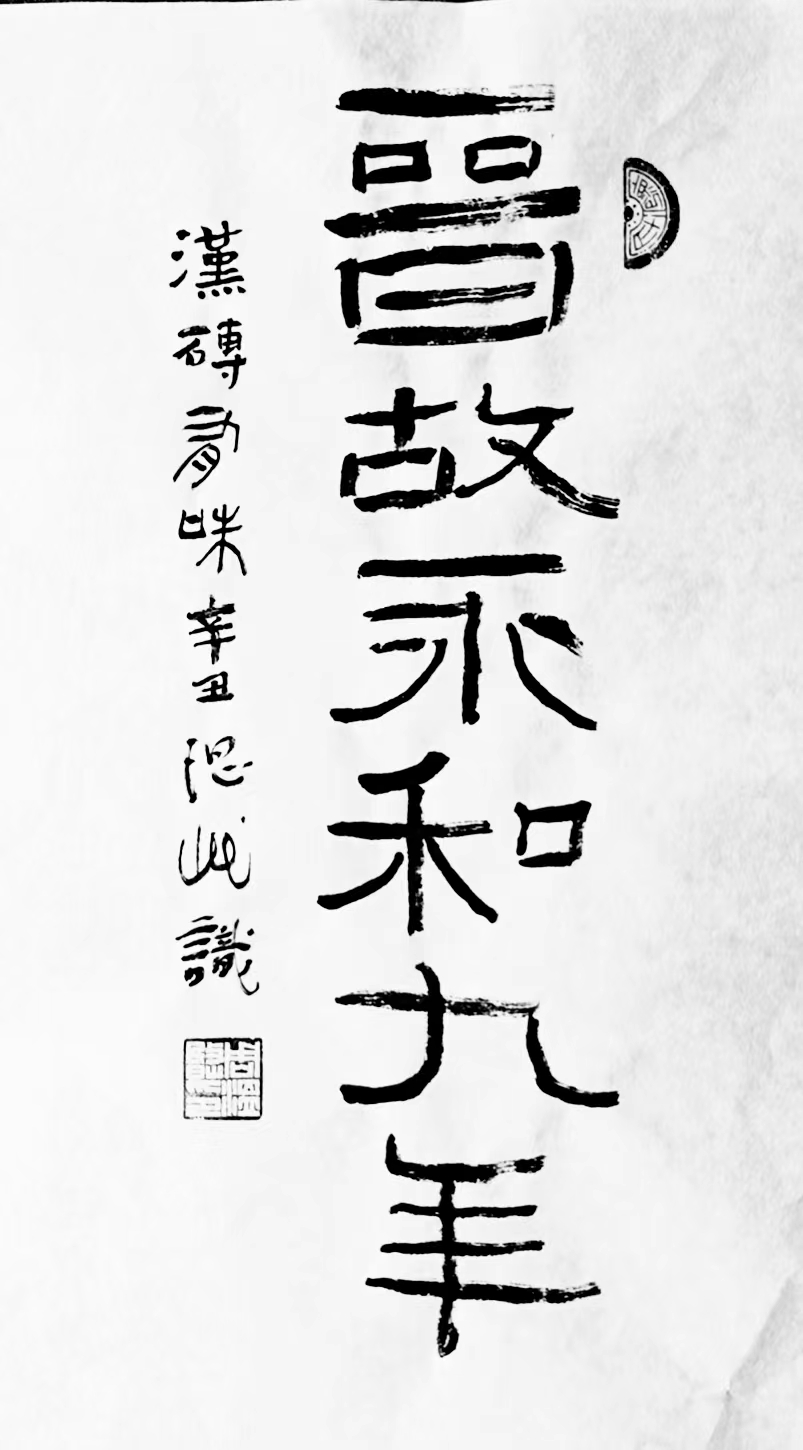 晉故永和九年
漢磚有味辛丑温此識